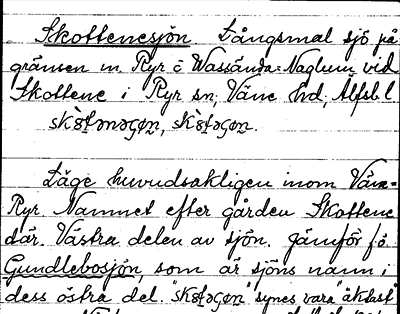 Skottenesjön Långsmal sjö på
gränsen m. Ryr o Wassända-Naglum vid
Skottene i Ryr sn, Väne hd, Älfsb l
Läge huvudsakligen inom Väne-
Ryr. Namnet efter gården Skottene
där. Västra delen av sjön. Jämför fö
Gundlebosjön, som är sjöns namn i
dess östra del. synes vara "äktast"